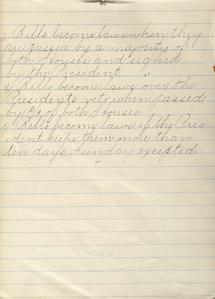 Bills become laws when they
are passed by a majority of
both Houses and signed
by the President. "
Bills become laws over the
Presidents veto when passed
by 2/3 of both Houses
Bills become laws if the Pres
ident keeps them more than
ten days, Sunday excepted.
"